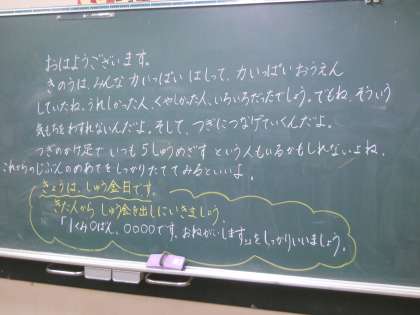 おはようございます。
きのうは、みんな力いっぱい はしって、力いっぱい おうえん
していたね。うれしかった人、くやしかった人、いろいろだったでしょう。でもね、そういう
気もちをわすれないんだよ。そして、つぎにつなげていくんだよ。
つぎのかけ足で いつも5しゅうめざす という人もいるかもしれないよね。
これからのじぶんのめあてをしっかりたててみるといいよ。
きょうは、しゅう金日です。
きた人から しゅう金を出しにいきましょう。
「1くみ○ばん、○○○○です。おねがいします。」をしっかりいいましょう。